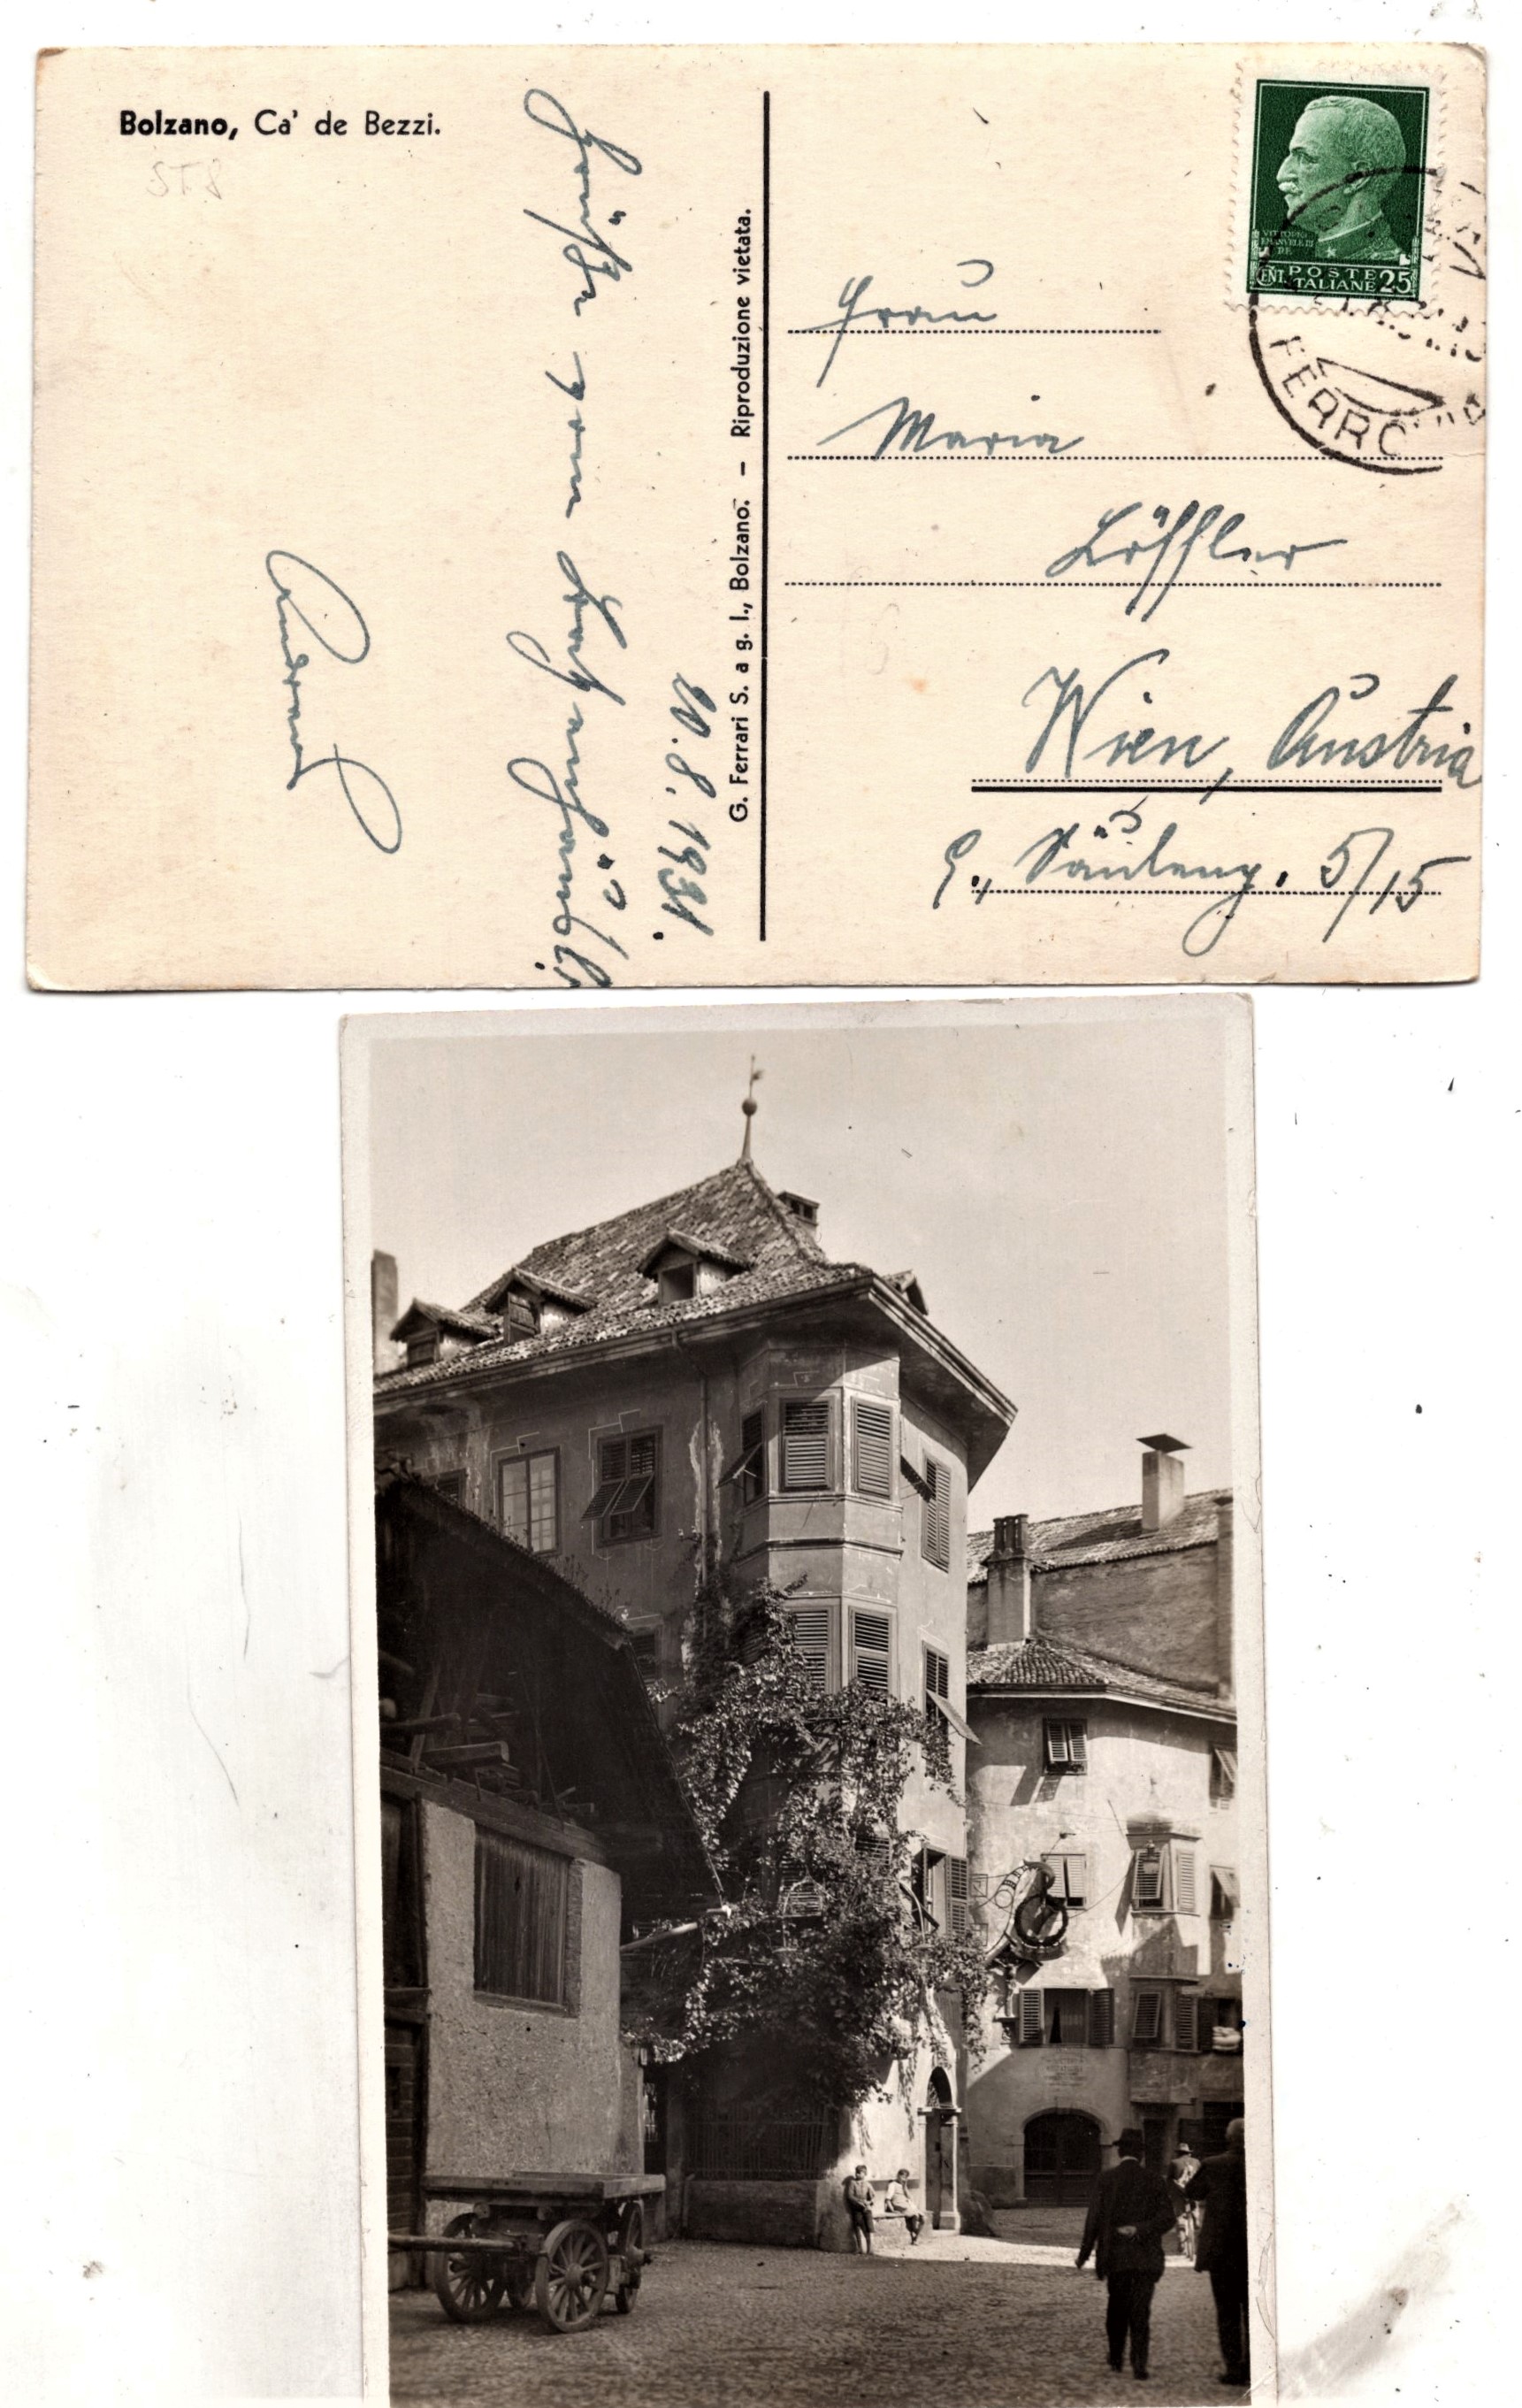 Bolzano, Ca' de Bezzi.
ST8
20.8.1931.
Grüße vom Batzenhäusl.
G. Ferrari S. a g. l., Bolzano. – Riproduzione vietata.
VITTORIO
EMANVELE III
RE
CENT. POSTE
ITALIANE 25
FERRO
Frau
Maria
Löffler
Wien, Austria
9., Säuleng. 5/15